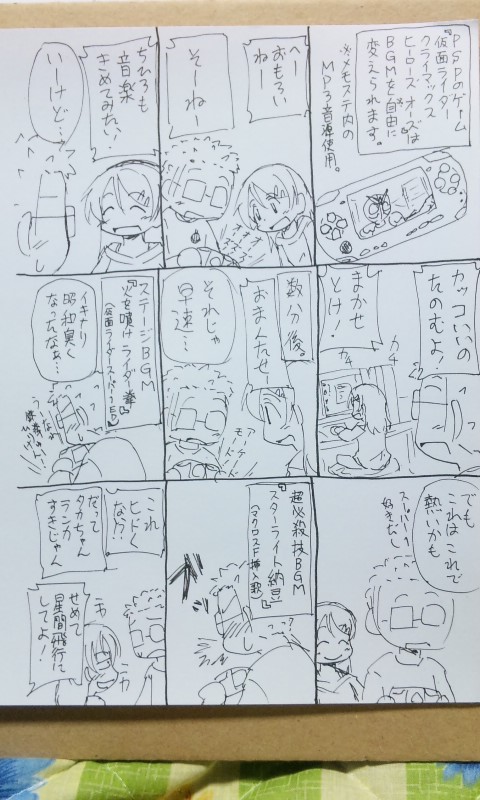 PSPのゲーム
仮面ライダー
クライマックス
ヒーローズ オーズは
BGMを自由に
変えられます。
※メモステ内の
MP3音源使用。
へー
おもろい
ねー
そーねー
オオオ
ちひろも
音楽
きめてみたい!
いーけど…
カッコいいの
たのむよ?
まかせ
とけ!
カチ
カチ
数分後。
おまんたせー
それじゃ
早速…
アーケード
モード
ステージBGM
『火を噴けライダー拳』
(仮面ライダースーパー1ED)
イキナリ
昭和臭く
なったなぁ…
でも
これはこれで
熱いかも
スーパー1
好きだし
超必殺技BGM
『スターライト納豆』
(マクロスF挿入歌)
これ
ヒドく
な!?
だって
タカちゃん
ランカ
すきじゃん
せめて
星間飛行に
してよ!